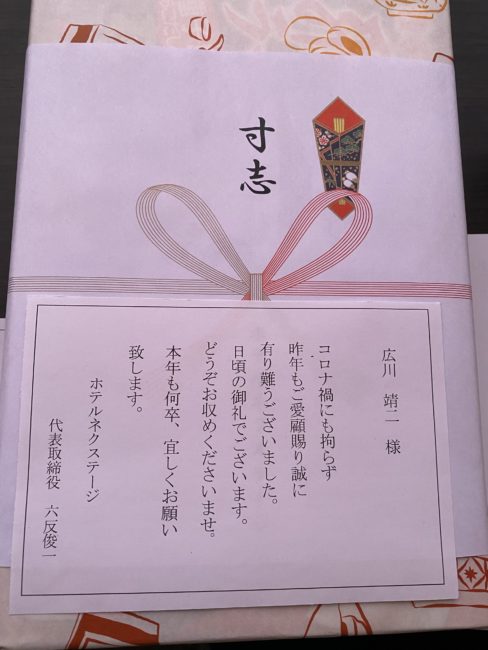 寸志
広川 靖二 様
コロナ禍にも拘らず
昨年もご愛顧賜り誠に
有り難うございました。
日頃の御礼でございます。
どうぞお収めくださいませ。
本年も何卒、宜しくお願い
致します。
ホテルネクステージ
代表取締役 六反俊一